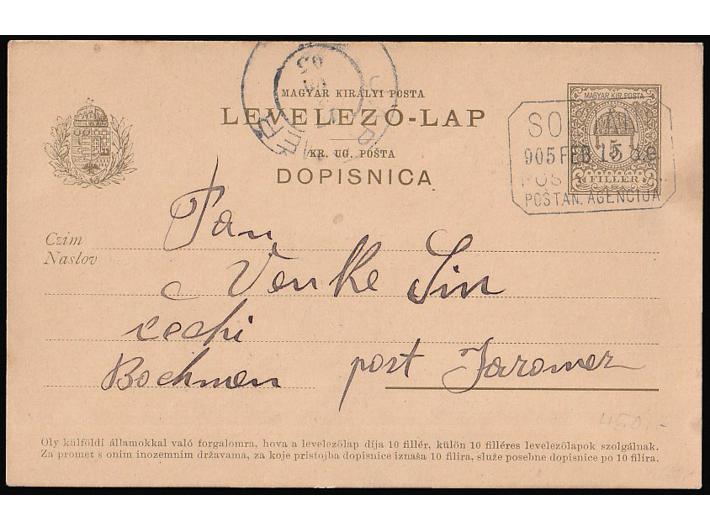 MAGYAR KIRÁLYI POSTA
LEVELEZŐ-LAP
KR. UG. POŠTA
DOPISNICA
MAGYAR KIR. POSTA
5
FILLER
905 FEB 15
POŠTAN. AGENCIJA
Czim
Naslov
Pan
Venke Sin
čechi
Bochmen post Jaromer
450.-
Oly külföldi államokkal való forgalomra, hova a levelezőlap díja 10 fillér, külön 10 filléres levelezőlapok szolgálnak.
Za promet s onim inozemnim državama, za koje pristojba dopisnice iznaša 10 filira, služe posebne dopisnice po 10 filira.